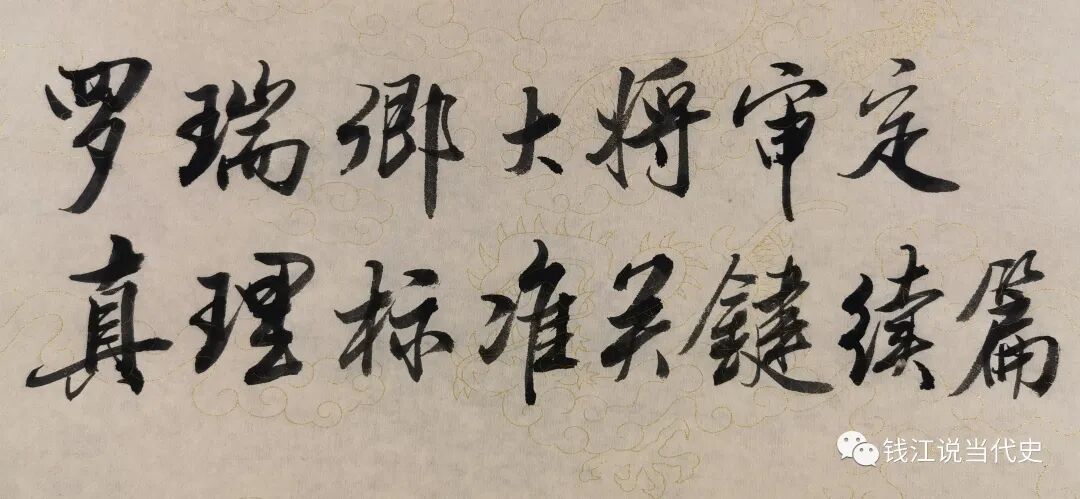 罗瑞卿大将审定
真理标准关键续篇
钱江说当代史